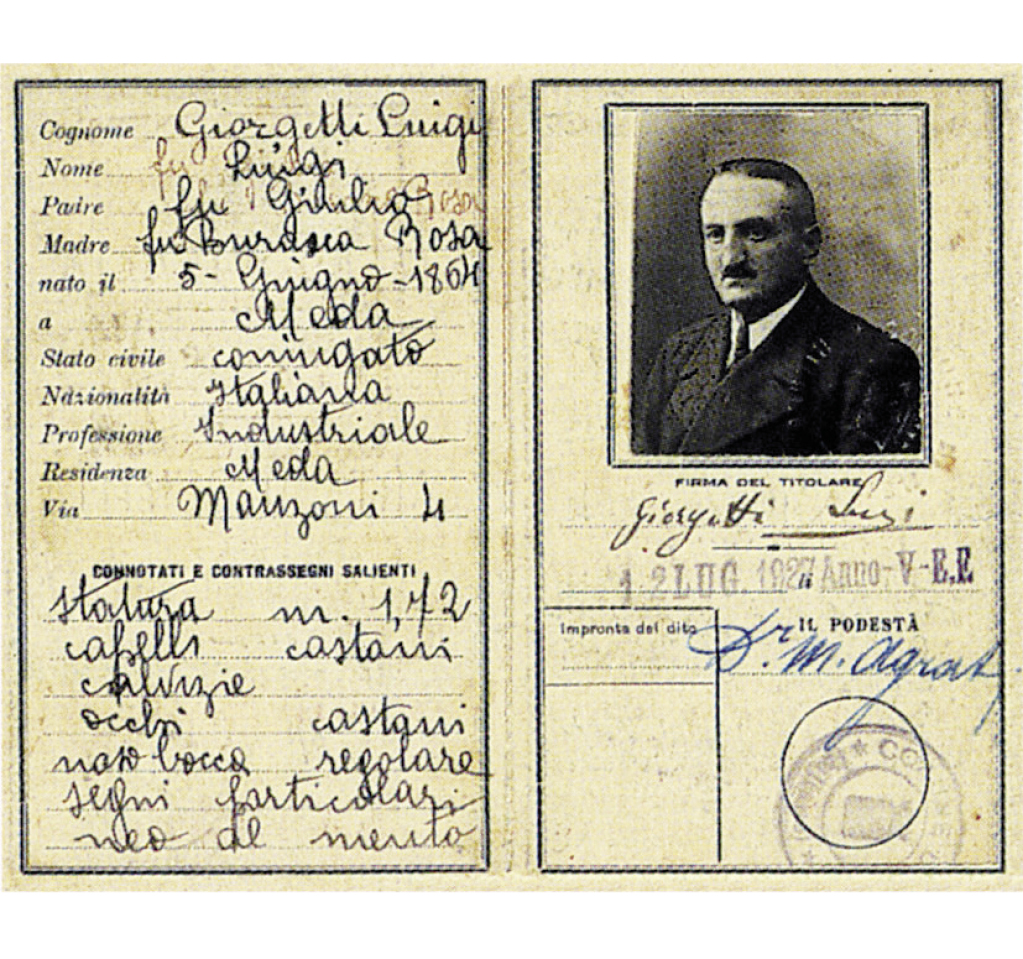 Cognome Giorgetti Luigi
Nome fu Luigi
Padre fu Giulio Rosa
Madre fu Burasca Rosa
nato il 5 - Giugno - 1864
a Meda
Stato civile coniugato
Nazionalità Italiana
Professione Industriale
Residenza Meda
Via Manzoni 4
CONNOTATI E CONTRASSEGNI SALIENTI
statura m. 1,72
capelli castani
calvizie
occhi castani
naso bocca regolare
segni particolari
neo al mento
FIRMA DEL TITOLARE
Giorgetti Luigi
12 LUG. 1927 Anno - V - E.F.
li
Impronta del dito
IL PODESTÀ
Dr. M. Agrati